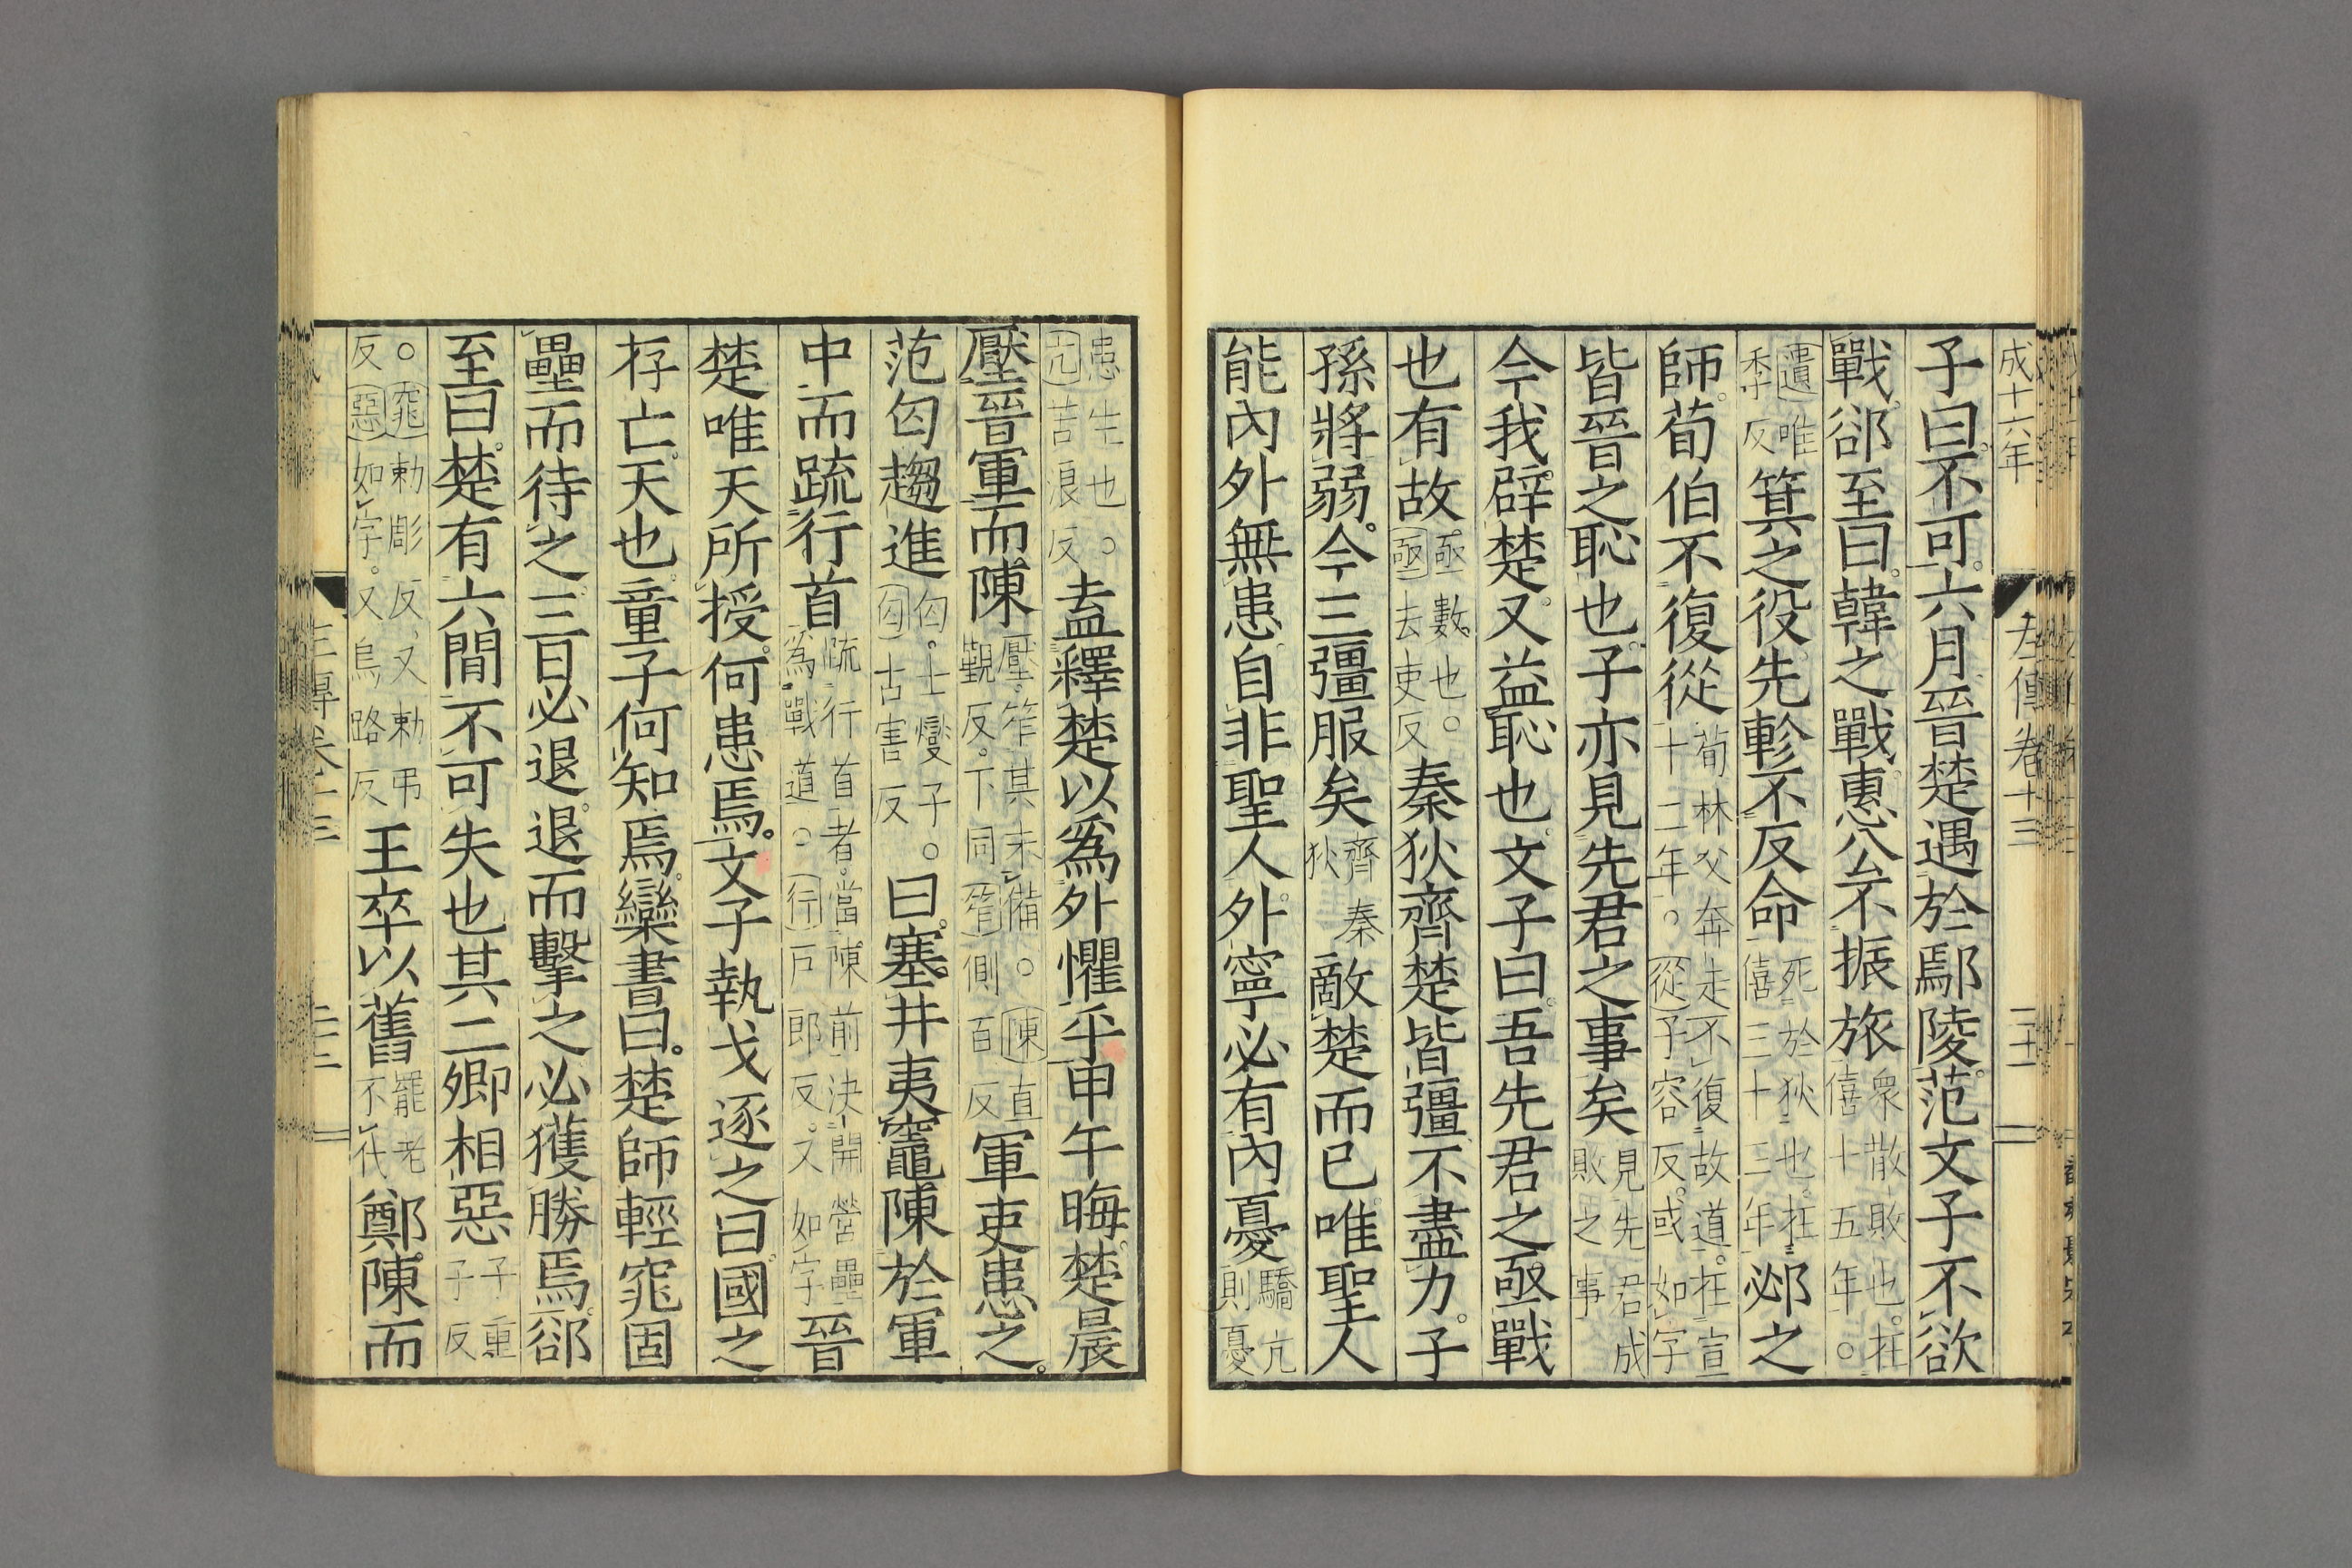 成十六年
左傳卷十三
子曰不可六月晉楚遇於鄢陵范文子不欲
戰郤至曰韓之戰惠公不振旅衆散敗也在僖十五年○
遺唯季反箕之役先軫不反命死於狄也在僖三十三年邲之
師荀伯不復從荀林父奔走不復故道在宣十二年○從子容反或如字
皆晉之恥也子亦見先君之事矣見先君成敗之事
今我辟楚又益恥也文子曰吾先君之亟戰
也有故亟數也○亟去吏反秦狄齊楚皆彊不盡力子
孫將弱今三彊服矣齊秦狄敵楚而已唯聖人
能內外無患自非聖人外寧必有內憂驕亢則憂
患生也○亢苦浪反盍釋楚以爲外懼乎甲午晦楚晨
壓晉軍而陳壓笮其未備○陳直覲反下同笮側百反軍吏患之
范匄趨進匄士燮子○匄古害反曰塞井夷竈陳於軍
中而疏行首疏行首者當陳前決開營壘爲戰道○行戶郎反又如字晉
楚唯天所授何患焉文子執戈逐之曰國之
存亡天也童子何知焉欒書曰楚師輕窕固
壘而待之三日必退退而擊之必獲勝焉郤
至曰楚有六間不可失也其二卿相惡子重子反
○窕勅彫反又勅弔反惡如字又烏路反王卒以舊罷老不代鄭陳而